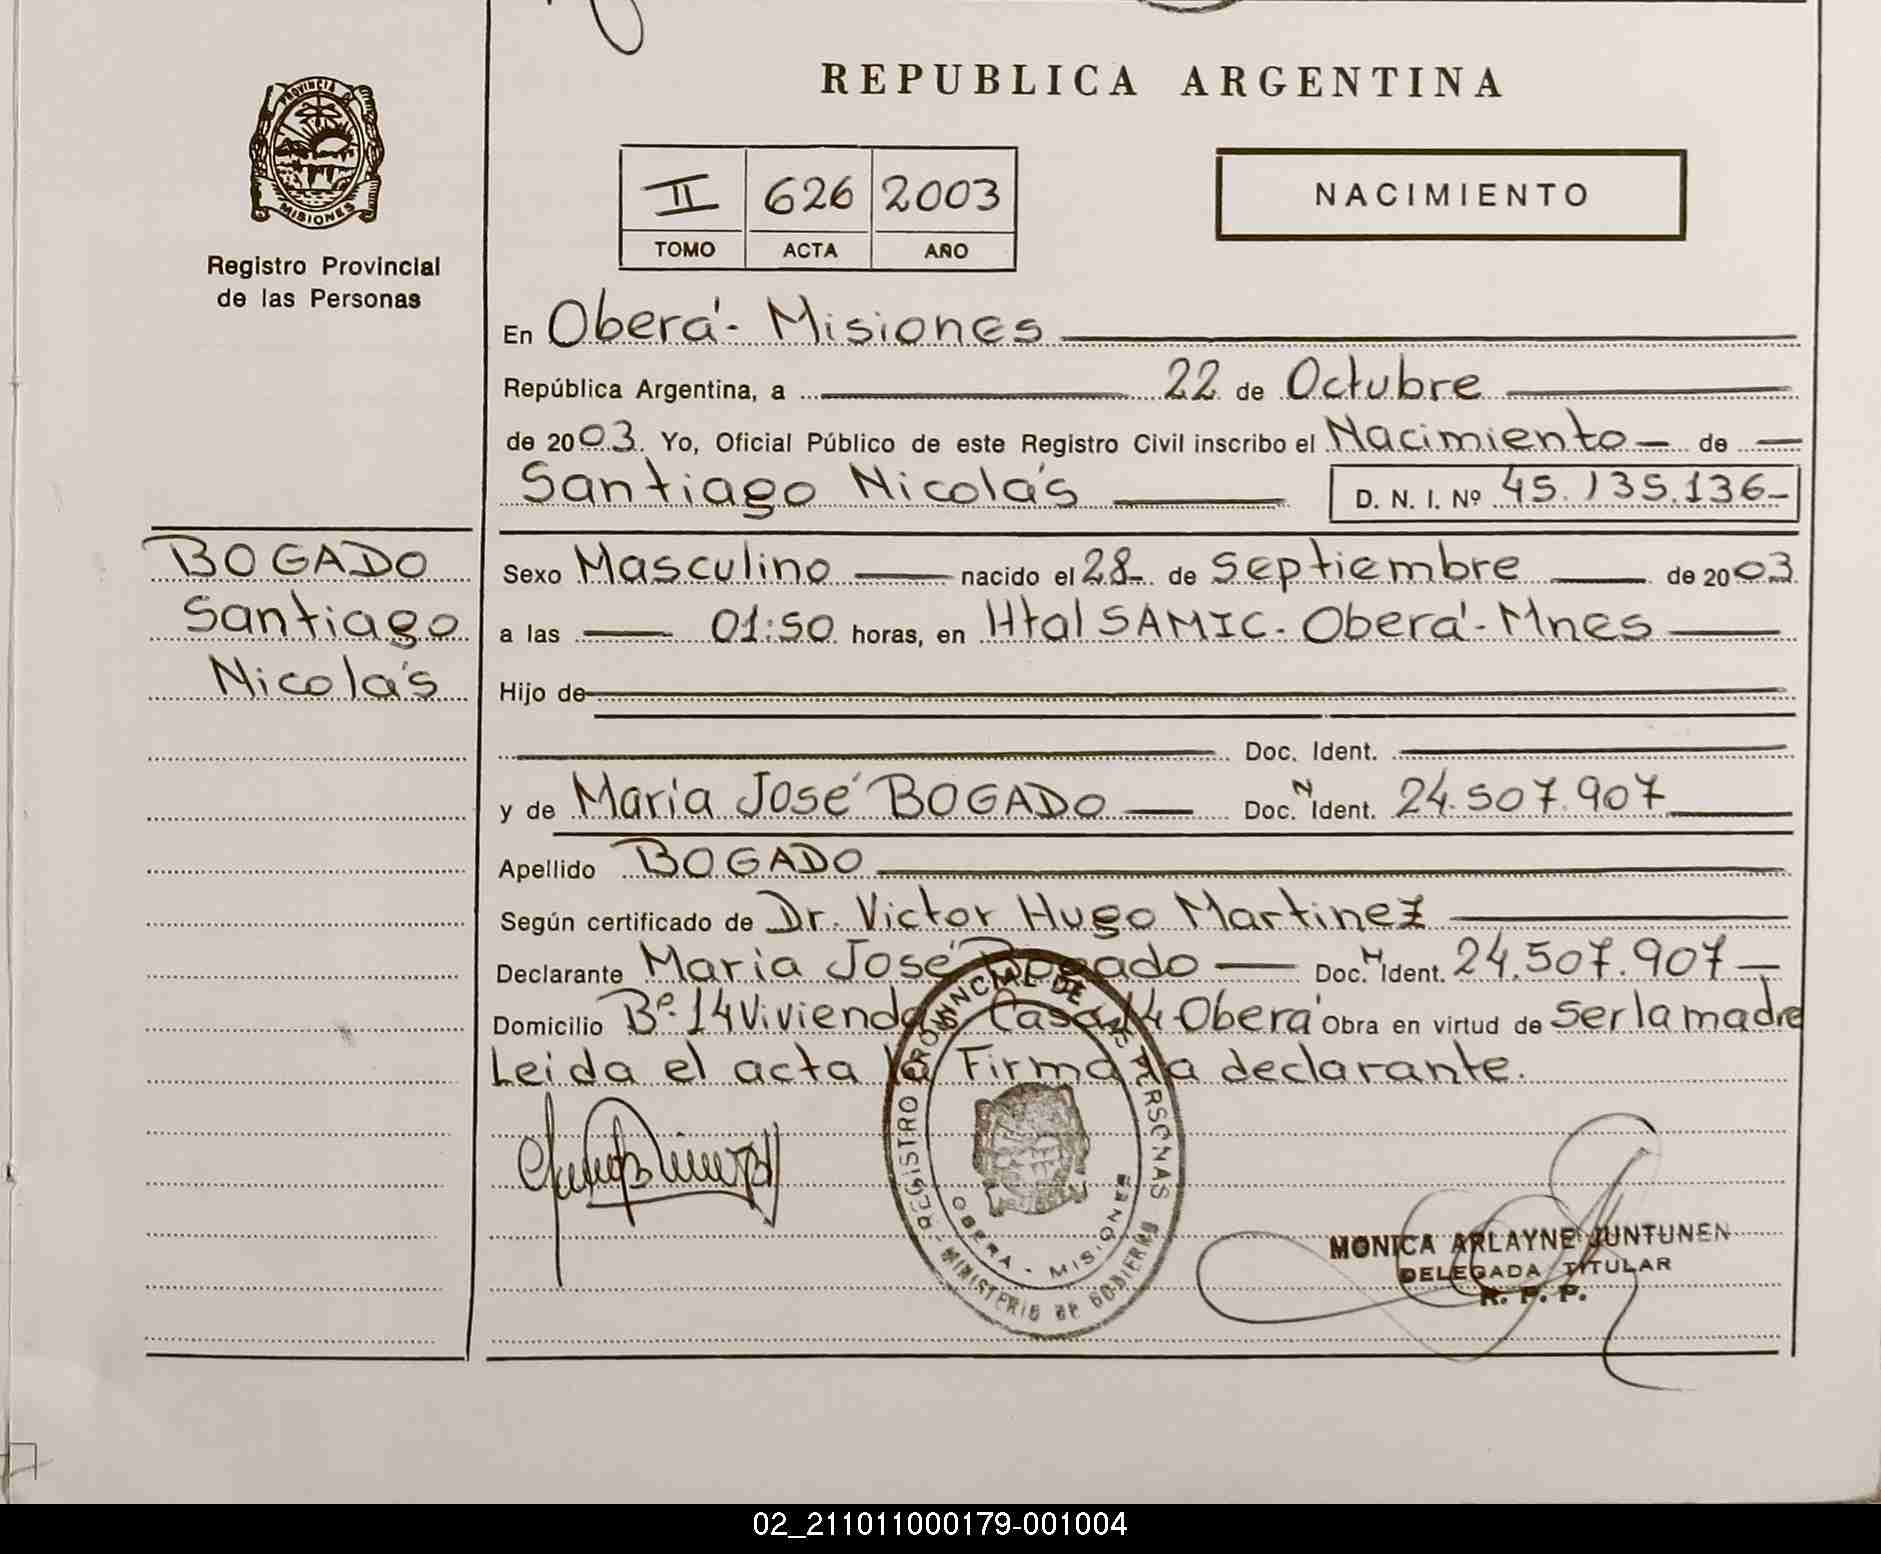 REPUBLICA ARGENTINA
PROVINCIA DE
MISIONES
Registro Provincial
de las Personas
II 626 2003
TOMO ACTA AÑO
NACIMIENTO
En Oberá - Misiones
República Argentina, a 22 de Octubre
de 2003. Yo, Oficial Público de este Registro Civil inscribo el Nacimiento de
Santiago Nicolás D. N. I. Nº 45.135.136
BOGADO
Santiago
Nicolás
Sexo Masculino nacido el 28 de Septiembre de 2003
a las 01:50 horas, en Htal SAMIC - Oberá - Mnes
Hijo de
Doc. Ident.
y de María José BOGADO Doc. N Ident. 24.507.907
Apellido BOGADO
Según certificado de Dr. Victor Hugo Martinez
Declarante María José Bogado Doc. N Ident. 24.507.907
Domicilio Bº 14 Viviendas Casa 14 Oberá Obra en virtud de ser la madre
Leida el acta la Firma la declarante.
REGISTRO PROVINCIAL DE LAS PERSONAS
OBERA - MISIONES
MINISTERIO DE GOBIERNO
MONICA ARLAYNE JUNTUNEN
DELEGADA TITULAR
R. P. P.
02_211011000179-001004